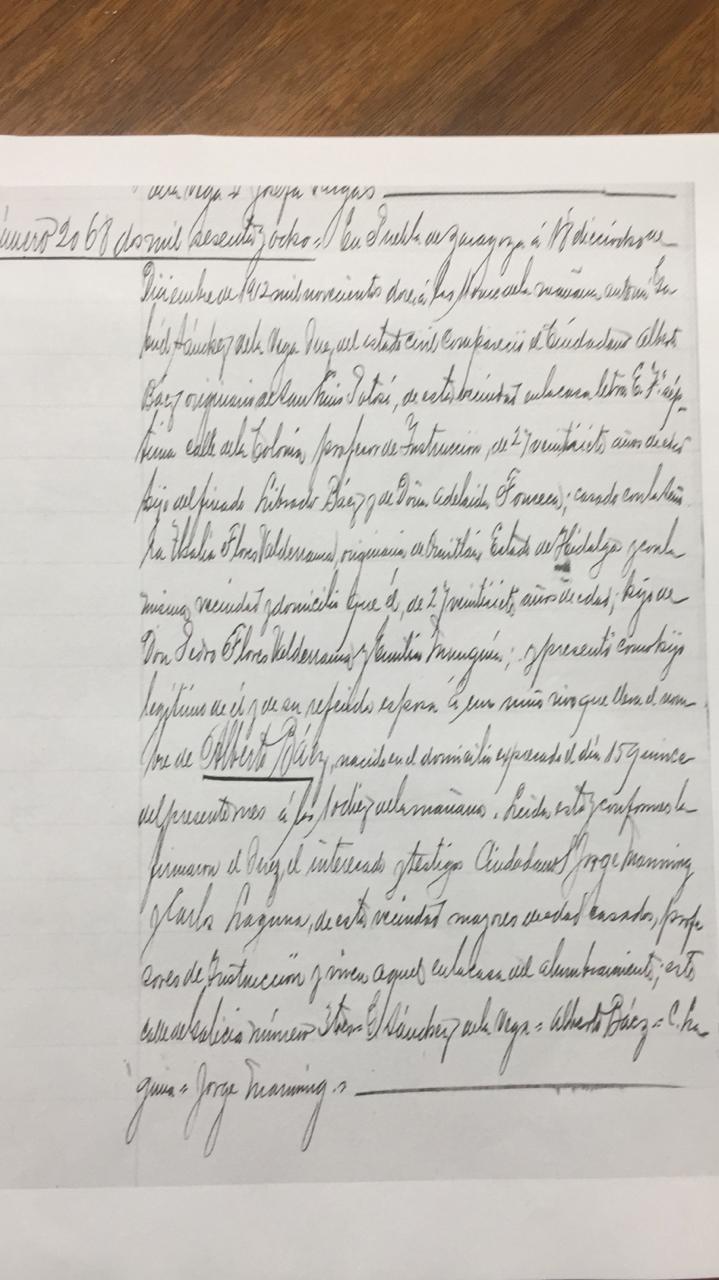 de la Vega = Josefa Vargas
número 2068 dos mil sesenta y ocho = En Puebla de Zaragoza á 18 dieciocho de
Diciembre de 1912 mil novecientos doce, á las once de la mañana, ante mí
Sánchez de la Vega Juez del estado civil compareció el Ciudadano Alberto
Báez originario de San Luis Potosí, de esta vecindad en la casa letra E. 7ª sép-
tima calle de la Colonia, profesor de Instrucción, de 27 veintisiete años de edad
hijo del finado Librado Báez y de Doña Adelaida Fonseca; casado con la Seño
ra Thalia Flores Valderrama, originaria de Estado de Hidalgo y con la
misma vecindad y domicilio que él, de 27 veintisiete años de edad, hija de
Don Pedro Flores Valderrama y Emilia; y presentó como hijo
legítimo de él y de su referida esposa á un niño vivo que lleva el nom-
bre de Alberto Báez, nacido en el domicilio expresado el día 15 quince
del presente mes á las 10 diez de la mañana. Leída esta y conformes la
firmaron el Juez, el interesado y testigos Ciudadanos Jorge Manning
y Carlos Laguna, de esta vecindad mayores de edad casados, profe
sores de Instrucción y viven aquel en la casa del alumbramiento; este
calle de Galicia número 3 tres = E Sánchez de la Vega = Alberto Báez = C. La
guna = Jorge Manning =